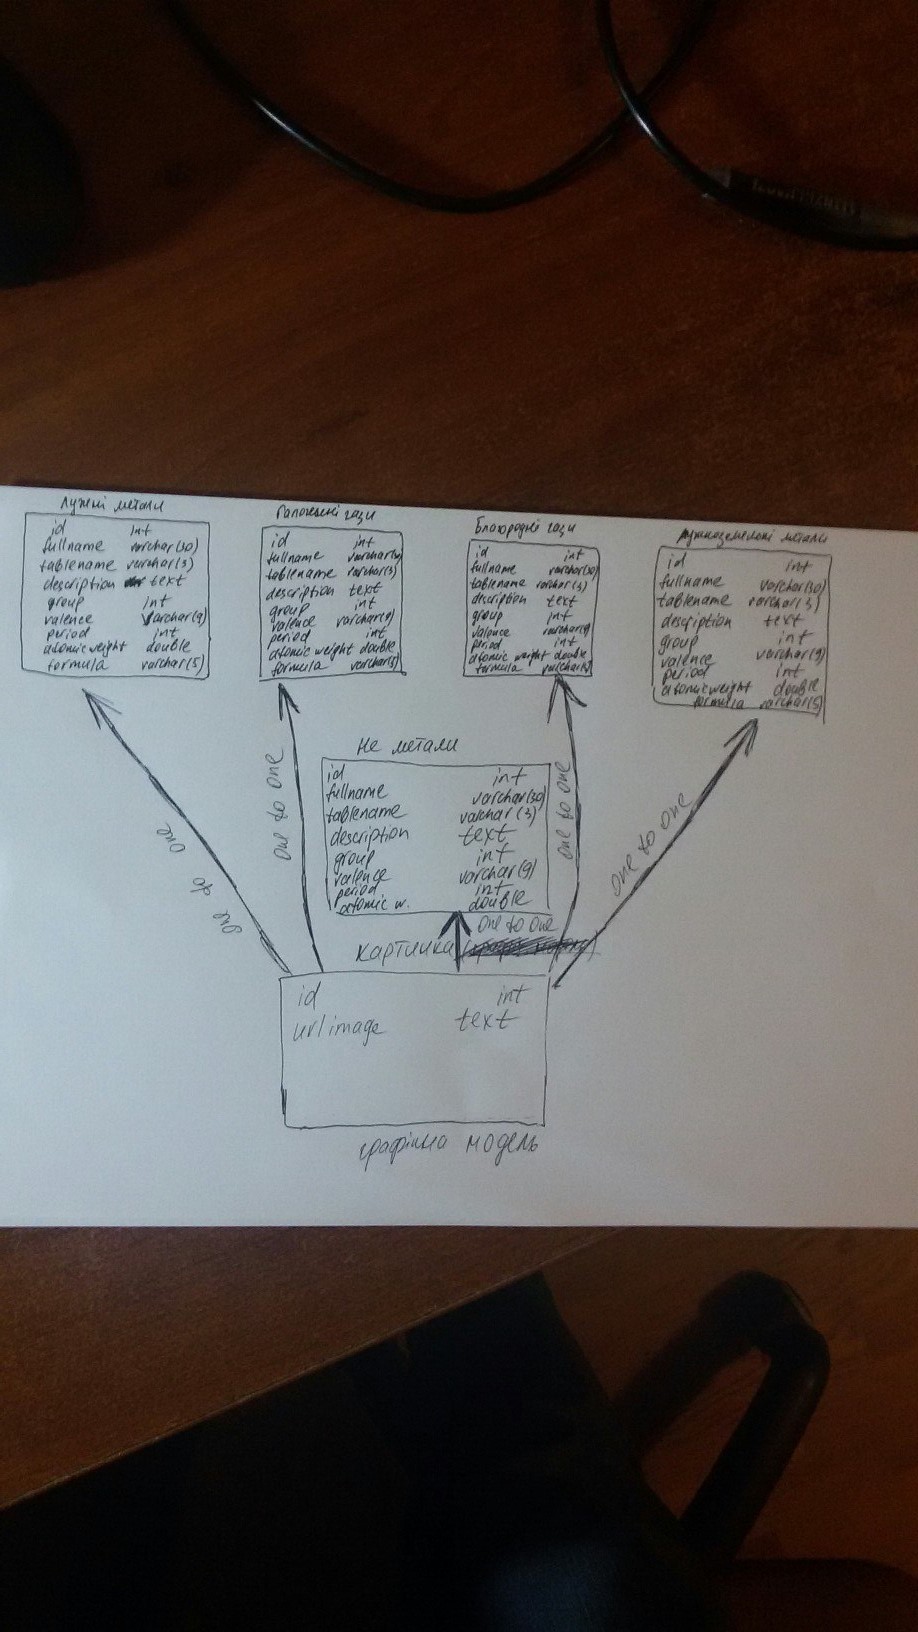 Лужні метали
id int
fullname varchar(30)
tablename varchar(3)
description text
group int
valence varchar(9)
period int
atomic weight double
formula varchar(5)
гази
id int
fullname varchar(30)
tablename varchar(3)
description text
group int
valence varchar(9)
period int
atomic weight double
formula varchar(5)
Благородні гази
id int
fullname varchar(30)
tablename varchar(3)
description text
group int
valence varchar(9)
period int
atomic weight double
formula varchar(5)
Лужноземельні метали
id int
fullname varchar(30)
tablename varchar(3)
description text
group int
valence varchar(9)
period int
atomic weight double
formula varchar(5)
Не метали
id int
fullname varchar(30)
tablename varchar(3)
description text
group int
valence varchar(9)
period int
atomic w. double
one to one
one to one
one to one
one to one
one to one
картинка
id int
urlimage text
графічна модель